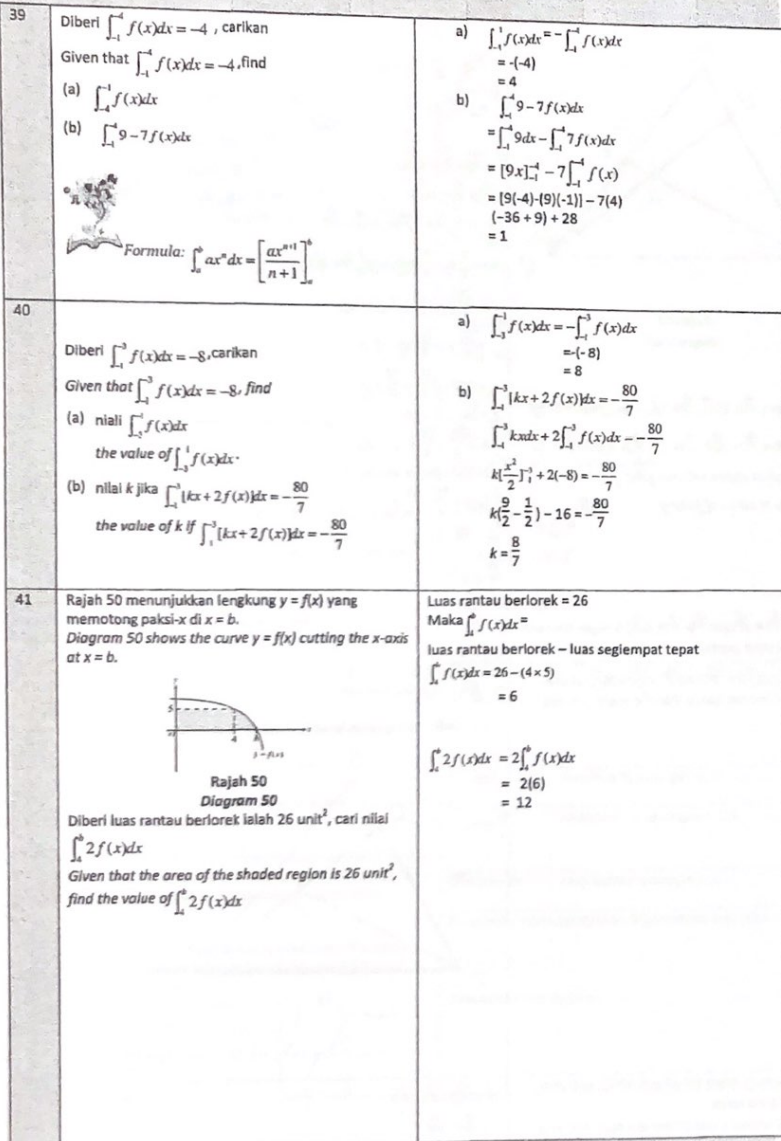 39
Diberi ∫₋₁⁻⁴ f(x)dx = –4 , carikan
Given that ∫₋₁⁻⁴ f(x)dx = –4,find
(a) ∫₋₄⁻¹ f(x)dx
(b) ∫₋₁⁻⁴ 9 – 7f(x)dx
Formula: ∫ₐᵇ axⁿ dx = [axⁿ⁺¹/(n+1)]ₐᵇ
= -(-4)
= 4
b) ∫₋₁⁻⁴ 9 – 7f(x)dx
= ∫₋₁⁻⁴ 9dx – ∫₋₁⁻⁴ 7f(x)dx
= [9x]₋₁⁻⁴ – 7∫₋₁⁻⁴ f(x)
= [9(-4)-(9)(-1)] – 7(4)
(-36 + 9) + 28
= 1
40
Diberi ∫₋₁⁻³ f(x)dx = –8,carikan
Given that ∫₋₁⁻³ f(x)dx = –8, find
(a) niali
the value of
(b) nilai k jika ∫₋₁⁻³ [kx + 2f(x)]dx = –80/7
the value of k if ∫₋₁⁻³ [kx + 2f(x)]dx = –80/7
=-(- 8)
= 8
b) ∫₋₁⁻³ [kx + 2f(x)]dx = –80/7
∫₋₁⁻³ kxdx + 2∫₋₁⁻³ f(x)dx – –80/7
+ 2(–8) = –80/7
k(9/2 – 1/2) – 16 = –80/7
k = 8/7
41
Rajah 50 menunjukkan lengkung y = f(x) yang
memotong paksi-x di x = b.
Diagram 50 shows the curve y = f(x) cutting the x-axis
at x = b.
5
4
Rajah 50
Diagram 50
Diberi luas rantau berlorek ialah 26 unit², cari nilai
∫₄ᵇ 2f(x)dx
Given that the area of the shaded region is 26 unit²,
find the value of ∫₄ᵇ 2f(x)dx
Luas rantau berlorek = 26
Maka ∫₄ᵇ f(x)dx =
luas rantau berlorek – luas segiempat tepat
∫₄ᵇ f(x)dx = 26 – (4 × 5)
= 6
∫₄ᵇ 2f(x)dx = 2∫₄ᵇ f(x)dx
= 2(6)
= 12